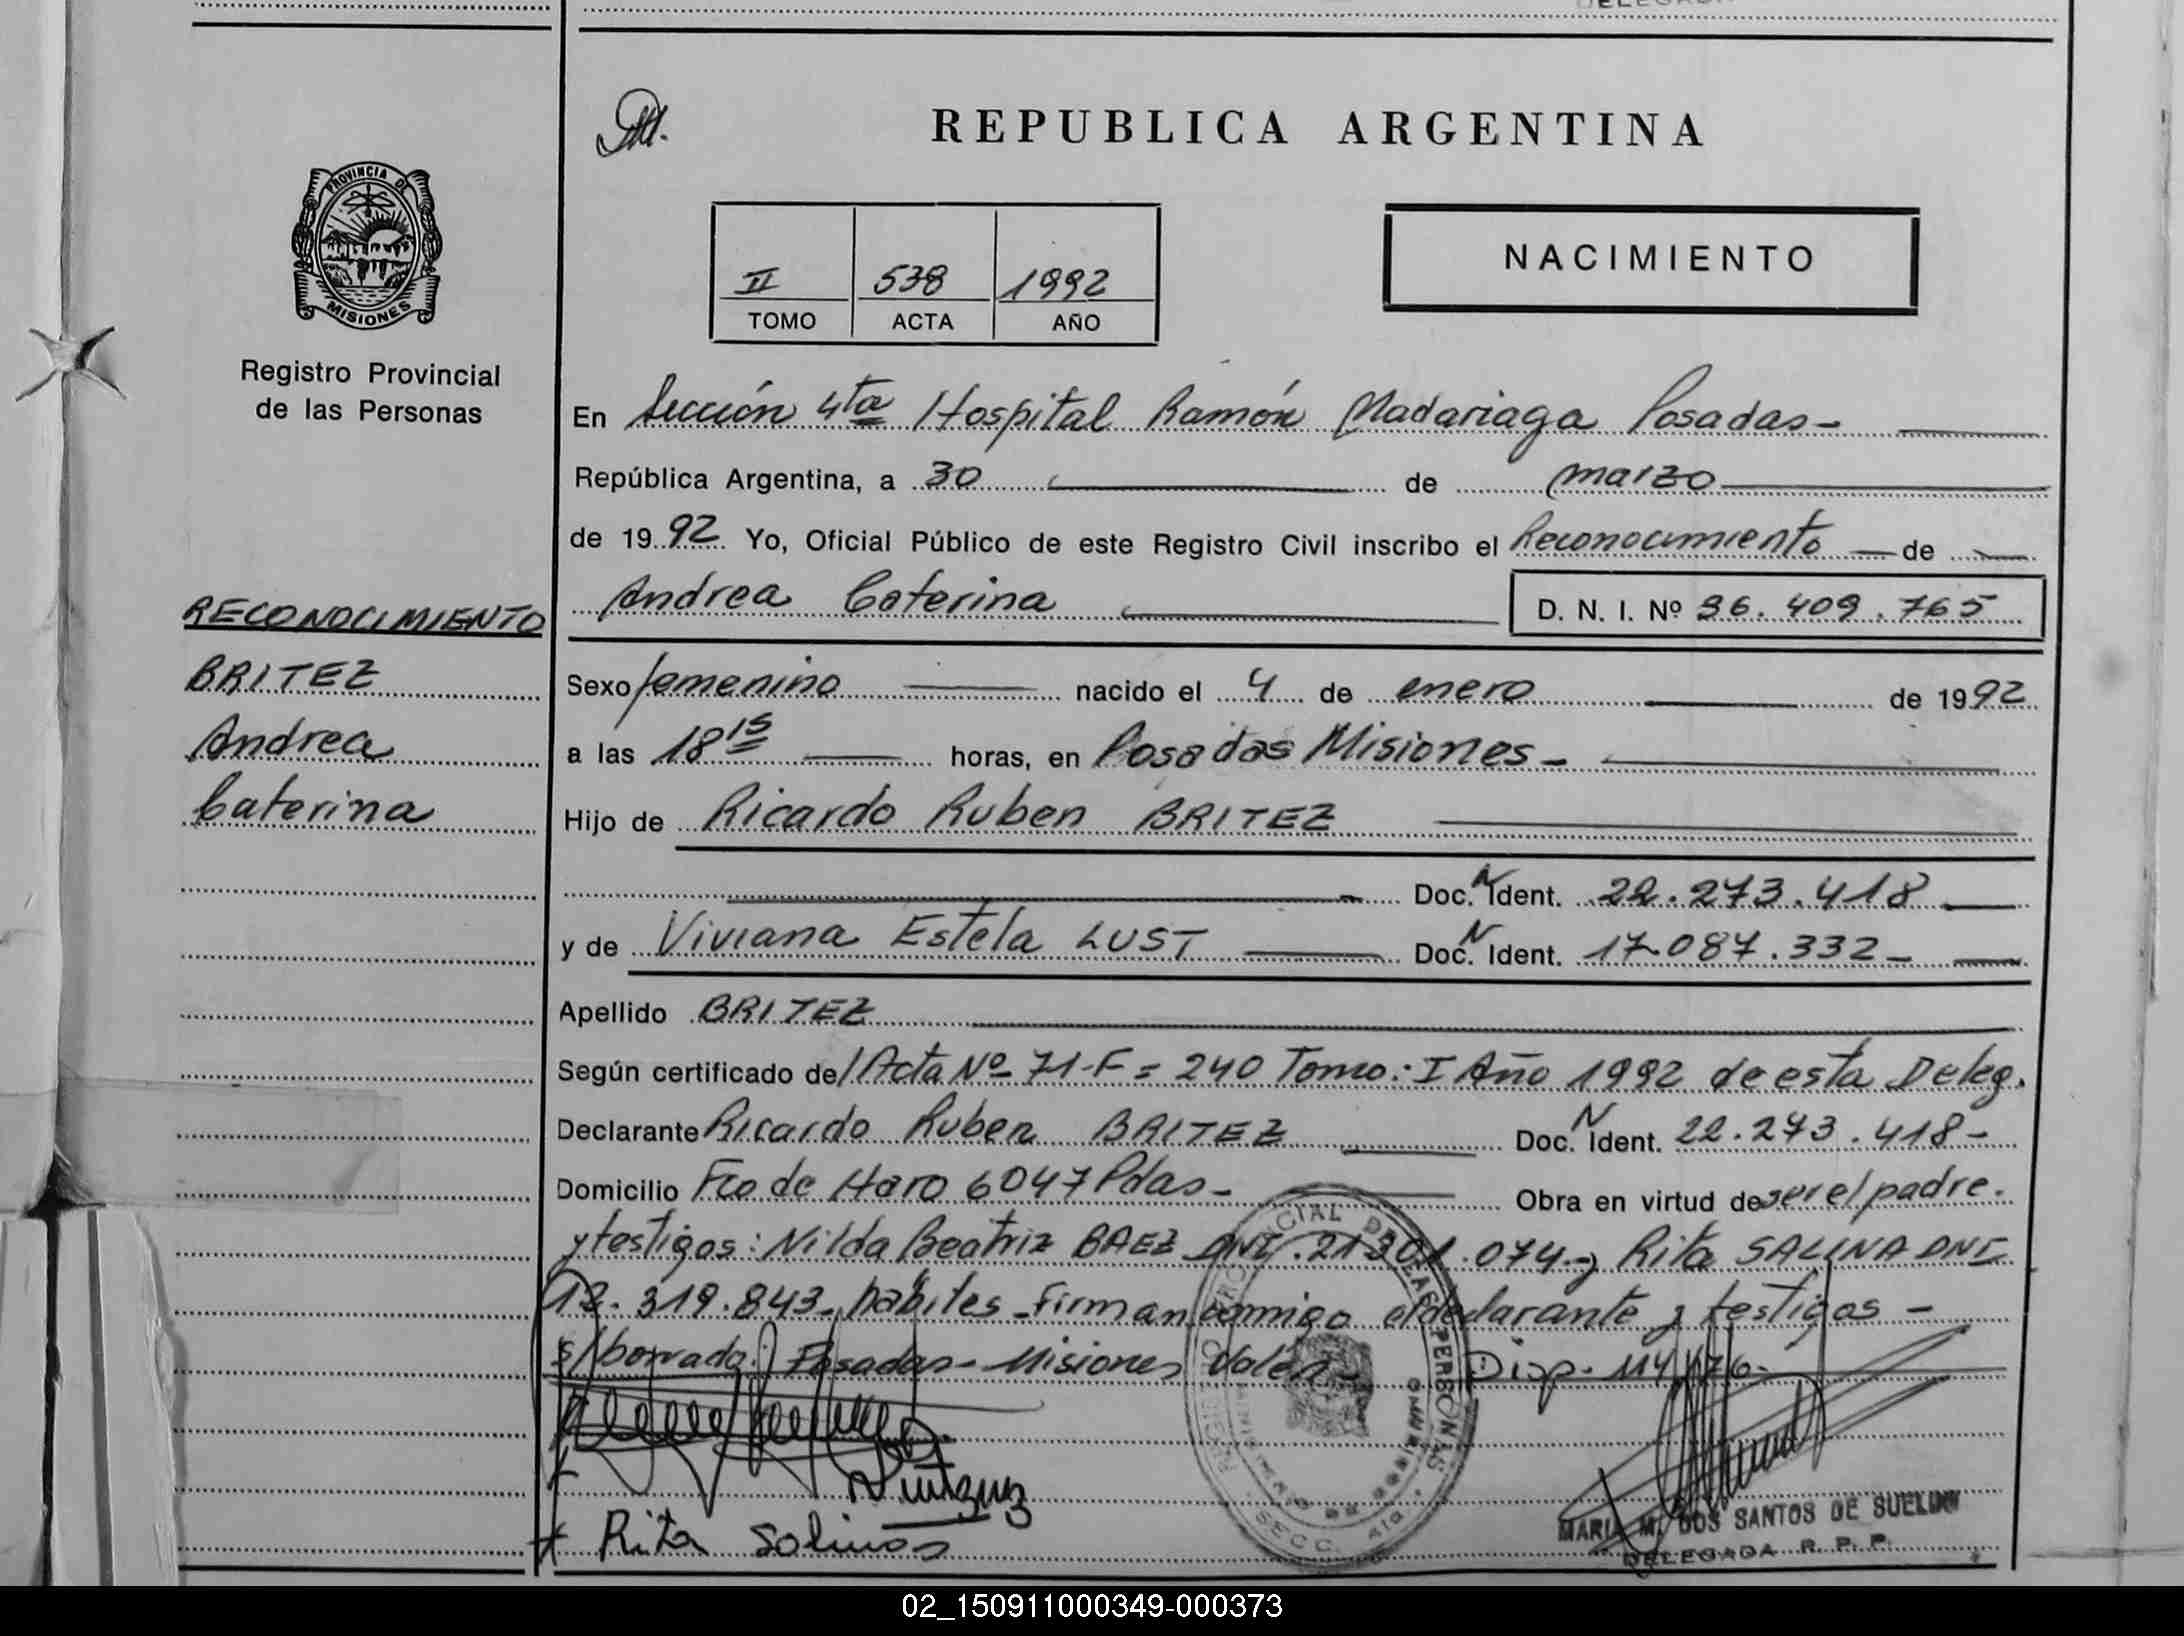 REPUBLICA ARGENTINA
PROVINCIA DE
MISIONES
Registro Provincial
de las Personas
II 538 1992
TOMO ACTA AÑO
NACIMIENTO
En Sección 4ta Hospital Ramón Madariaga Posadas-
República Argentina, a 30 de marzo
de 1992 Yo, Oficial Público de este Registro Civil inscribo el Reconocimiento de
Andrea Caterina D. N. I. Nº 36.409.765
RECONOCIMIENTO
BRITEZ
Andrea
Caterina
Sexo femenino nacido el 4 de enero de 1992
a las 18 15 horas, en Posadas Misiones-
Hijo de Ricardo Ruben BRITEZ
Doc. N Ident. 22.273.418
y de Viviana Estela LUST Doc. N Ident. 17.087.332-
Apellido BRITEZ
Según certificado del Acta Nº 71-F=240 Tomo: I Año 1992 de esta Deleg.
Declarante Ricardo Ruben BRITEZ Doc. N Ident. 22.273.418-
Domicilio Fco de Haro 6047 Pdas- Obra en virtud de ser el padre.
y testigos: Nilda Beatriz BAEZ DNI.21.301.074.-y Rita SALINA DNI
12.319.843- habiles-Firman conmigo el declarante y testigos-
s/borrado: Posadas-Misiones Valen- Disp. 114/76-
Rita Salinas
MARIA M. DOS SANTOS DE SUELDO
DELEGADA R. P. P.
02_150911000349-000373